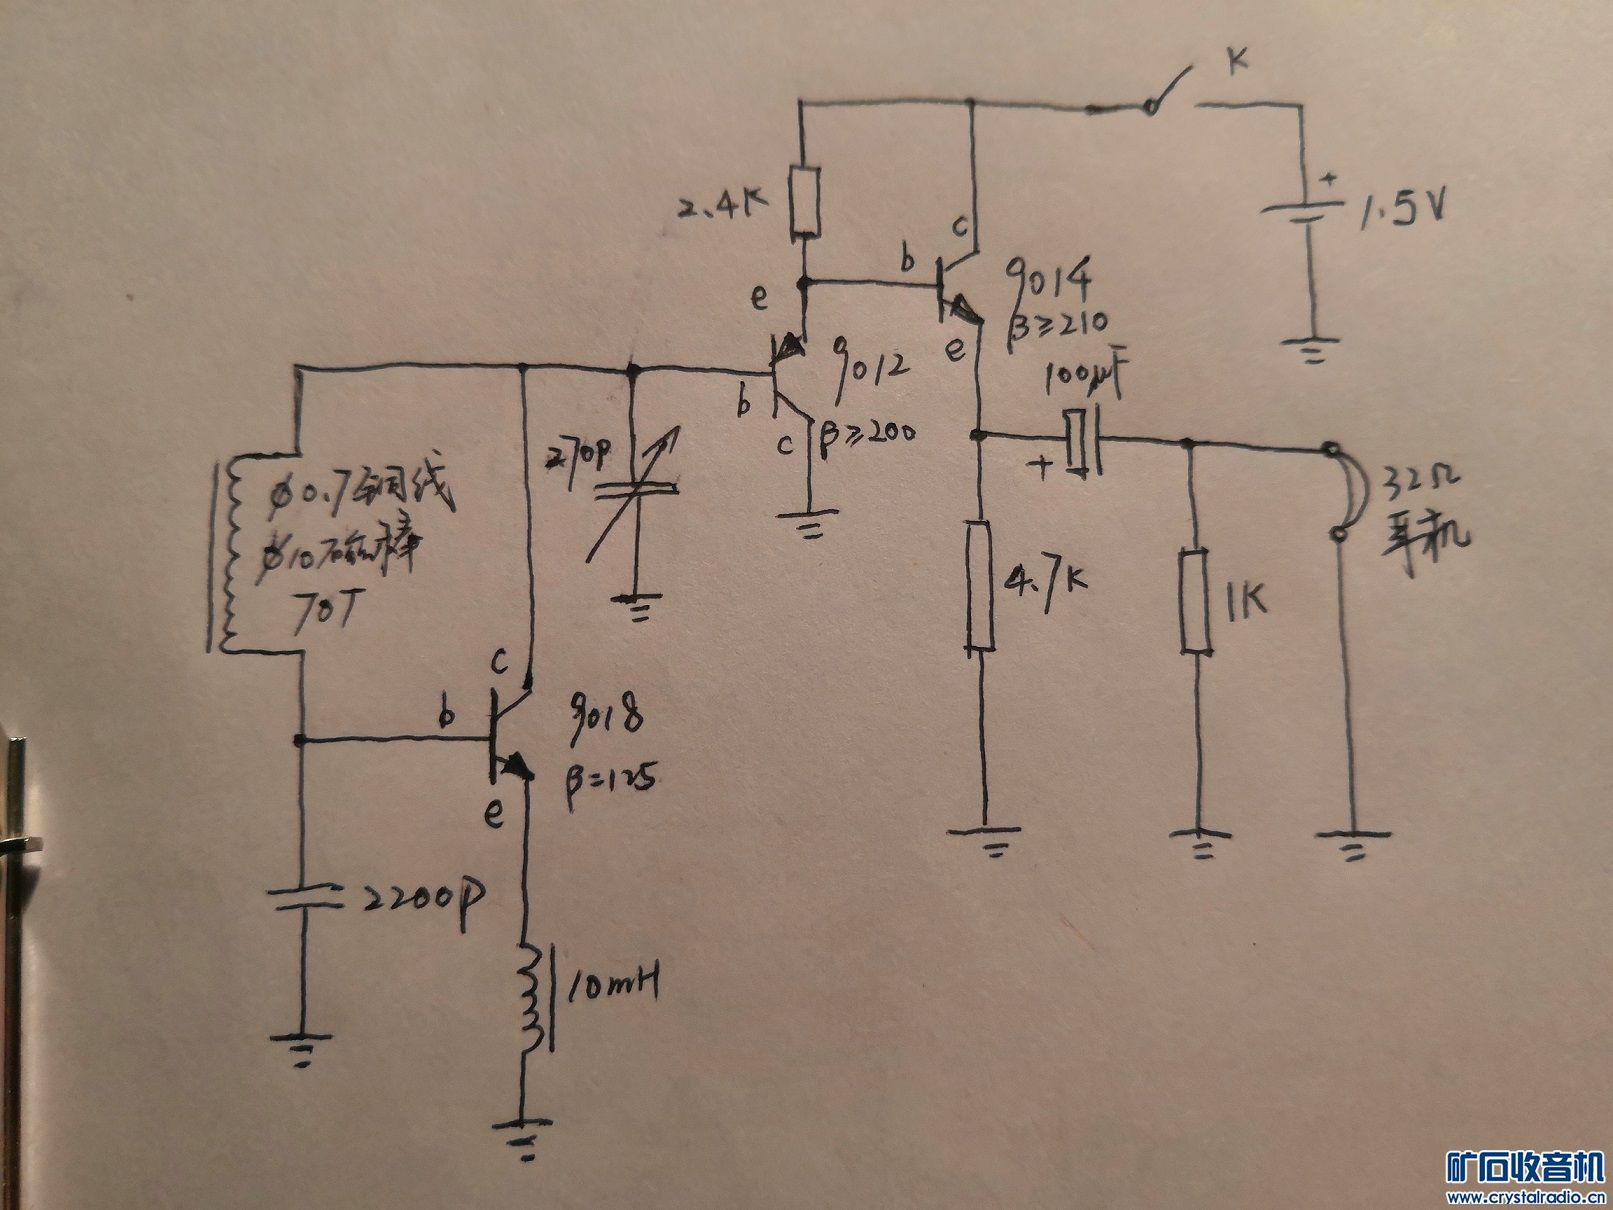 K
+
1.5V
2.4K
c
b
9014
β≥210
e
e
9012
β≥200
b
c
100μF
+
270P
φ0.7铜线
φ10磁棒
70T
32Ω
耳机
4.7K
1K
c
b
9018
β=125
e
2200P
10mH
矿石收音机
www.crystalradio.cn